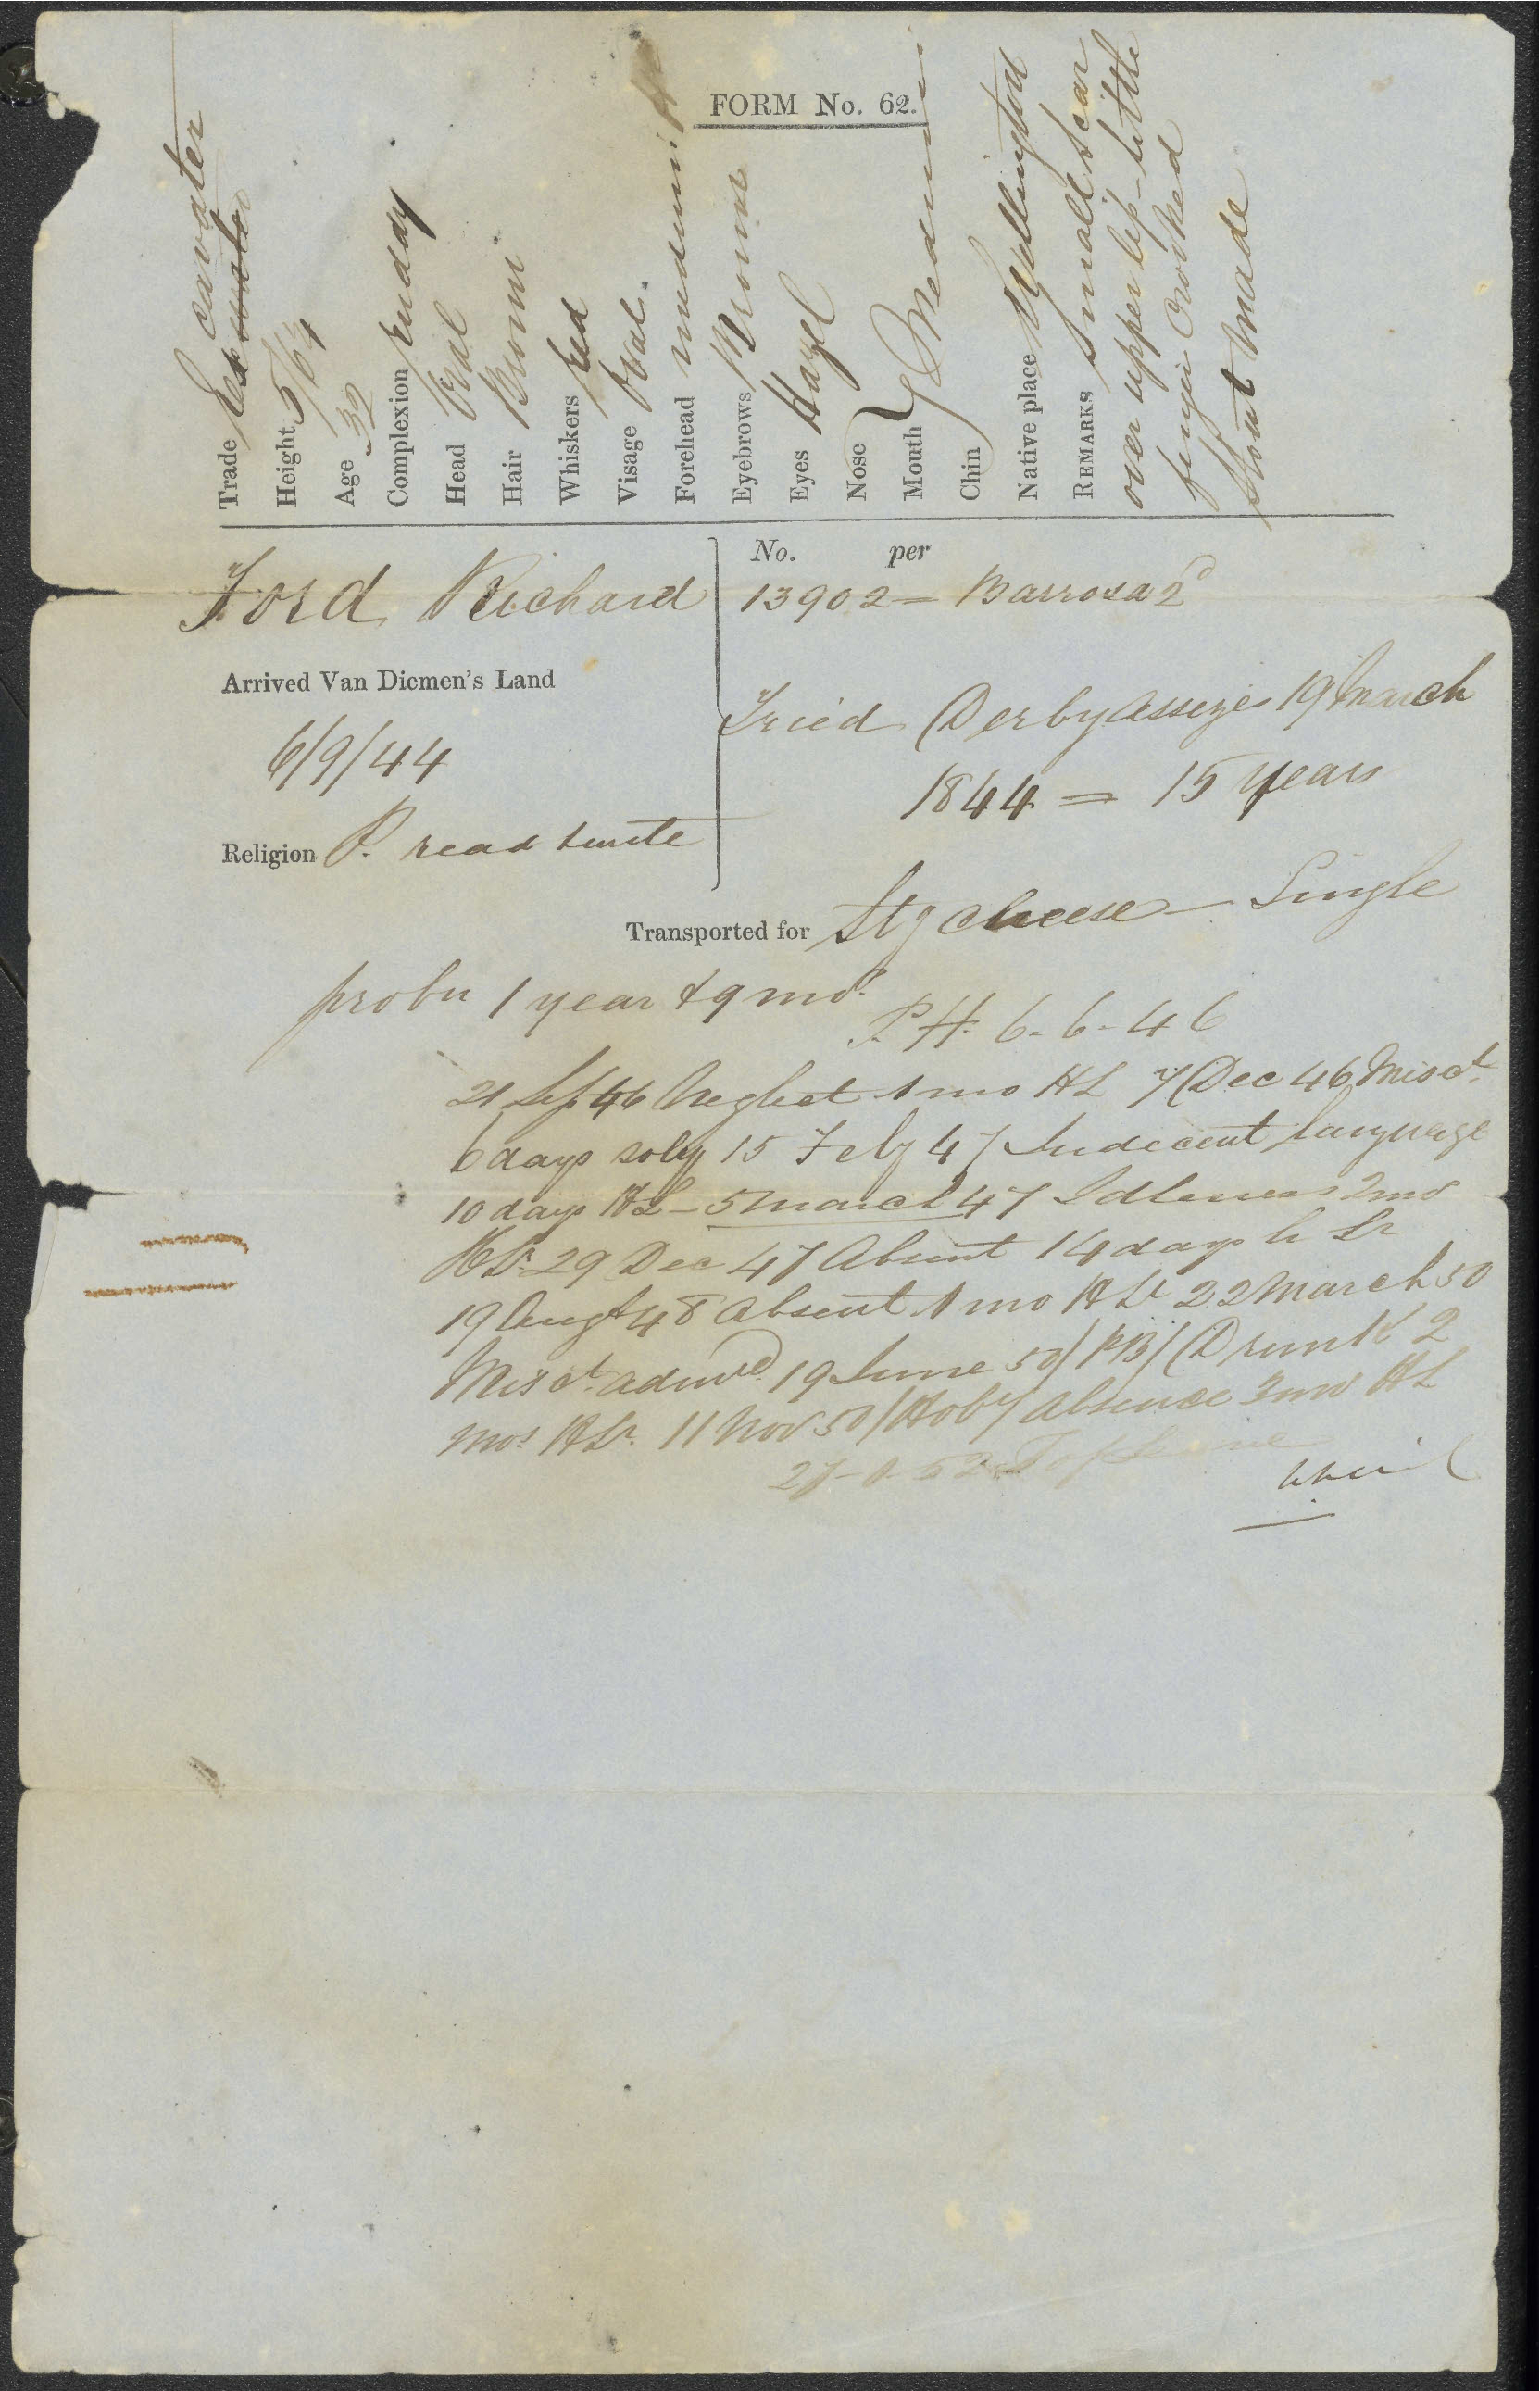 FORM No. 62.
Trade Excavater
Height 5/6¼
Age 32
Complexion ruddy
Head Oval
Hair Brown
Whiskers red
Visage Oval.
Forehead medium
Eyebrows Brown
Eyes Hazel
Nose
Mouth } Medium
Chin
Native place Wellington
REMARKS Small Scar
over upper lip - little
finger Crooked
Stout Made
Ford Richard
No. per
13902 = Barrosa 2d
Arrived Van Diemen's Land
6/9/44
Tried Derby Assizes 19 March
1844 = 15 years
Religion P. read & write
Transported for Stg cheese — Single
probn 1 year & 9 mos.
P. H. 6-6-46
21 Sep 46 Neglect 1 mo HL 7 Dec 46 Misct.
6 days soly 15 Feby 47 Indecent language
10 days HL - 5 March 47 Idleness 2 mos
HLr. 29 Dec 47 Absent 14 days h Lr
19 Augt 48 Absent 1 mo H Lr 22 March 50
Misct. admd. 19 June 50/ PB/ Drunk 2
mos HLr. 11 Nov 50/ Hob/ absence 3 mos HL